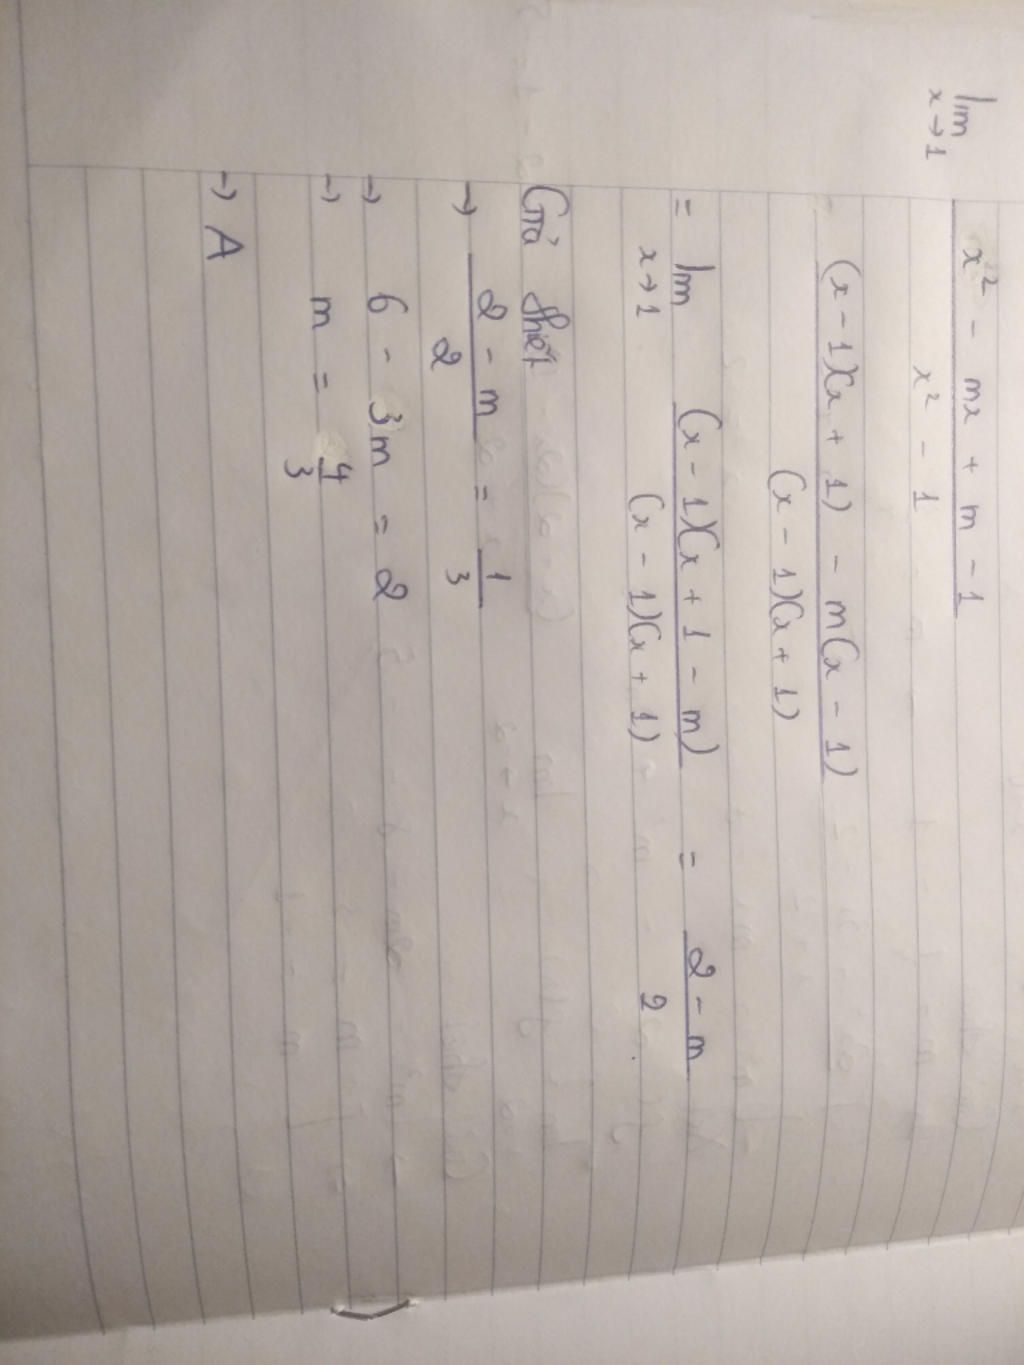 lim x→1 (x² - mx + m - 1)/(x² - 1)
= ((x - 1)(x + 1) - m(x - 1))/((x - 1)(x + 1))
= lim x→1 ((x - 1)(x + 1 - m))/((x - 1)(x + 1)) = (2 - m)/2
Giả thiết
→ (2 - m)/2 = 1/3
→ 6 - 3m = 2
→ m = 4/3
→ A